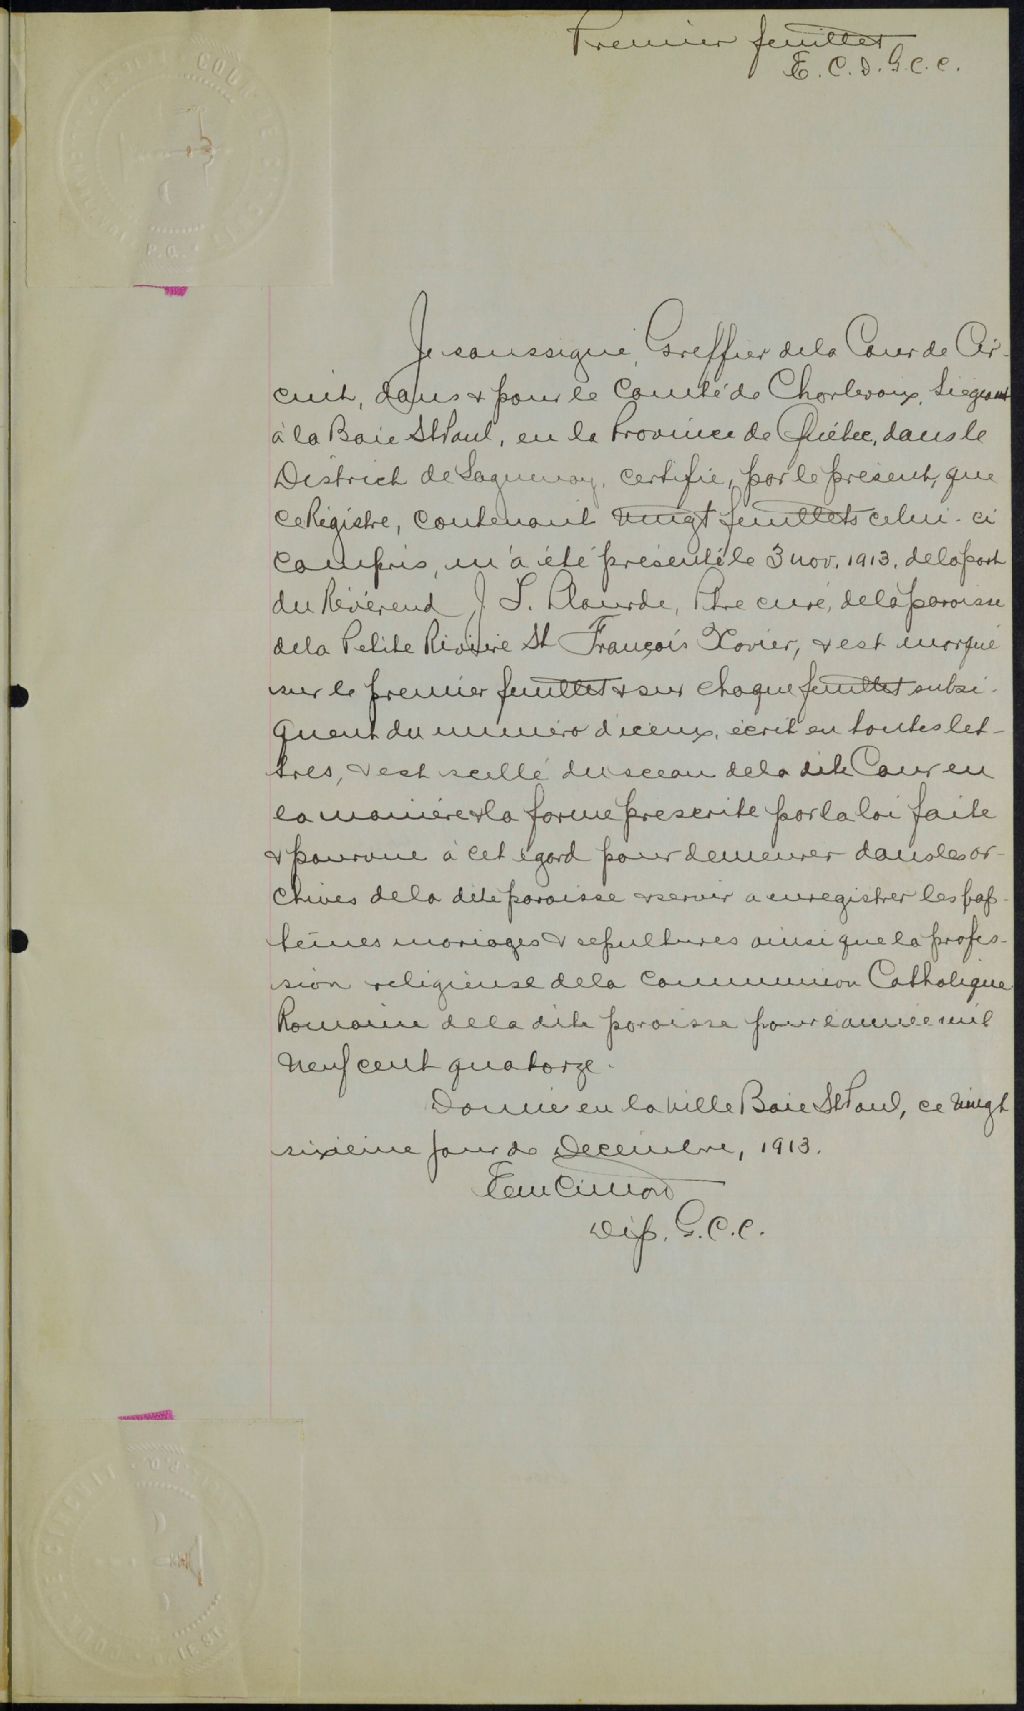 Premier feuillet
E. C. D. G. C. C.
Je soussigné, Greffier de la Cour de Cir-
cuit, dans & pour le Comté de Charlevoix, Siégeant
à la Baie St Paul, en la Province de Québec, dans le
District de Saguenay, certifie, par le présent, que
ce Régistre, contenant vingt feuillets celui-ci
compris, m'a été présenté le 3 nov. 1913. de la part
du Révérend J S. Plourde, Ptre curé, de la paroisse
de la Petite Rivière St François Xavier, & est marqué
sur le premier feuillet & sur chaque feuillet subsé-
quent du numéro d'iceux, écrit en toutes let-
tres, & est scellé du sceau de la dite Cour en
la manière & la forme prescrite par la loi faite
& pourvue à cet égard pour demeurer dans les ar-
chives de la dite paroisse & servir a enregistrer les bap-
têmes mariages & sépultures ainsi que la profes-
sion religieuse de la communion Catholique
Romaine de la dite paroisse pour l'année mil
neuf cent quatorze.
Donné en la ville Baie St Paul, ce vingt
sixième jour de Decembre, 1913.
Cimon
Dép. G. C. C.